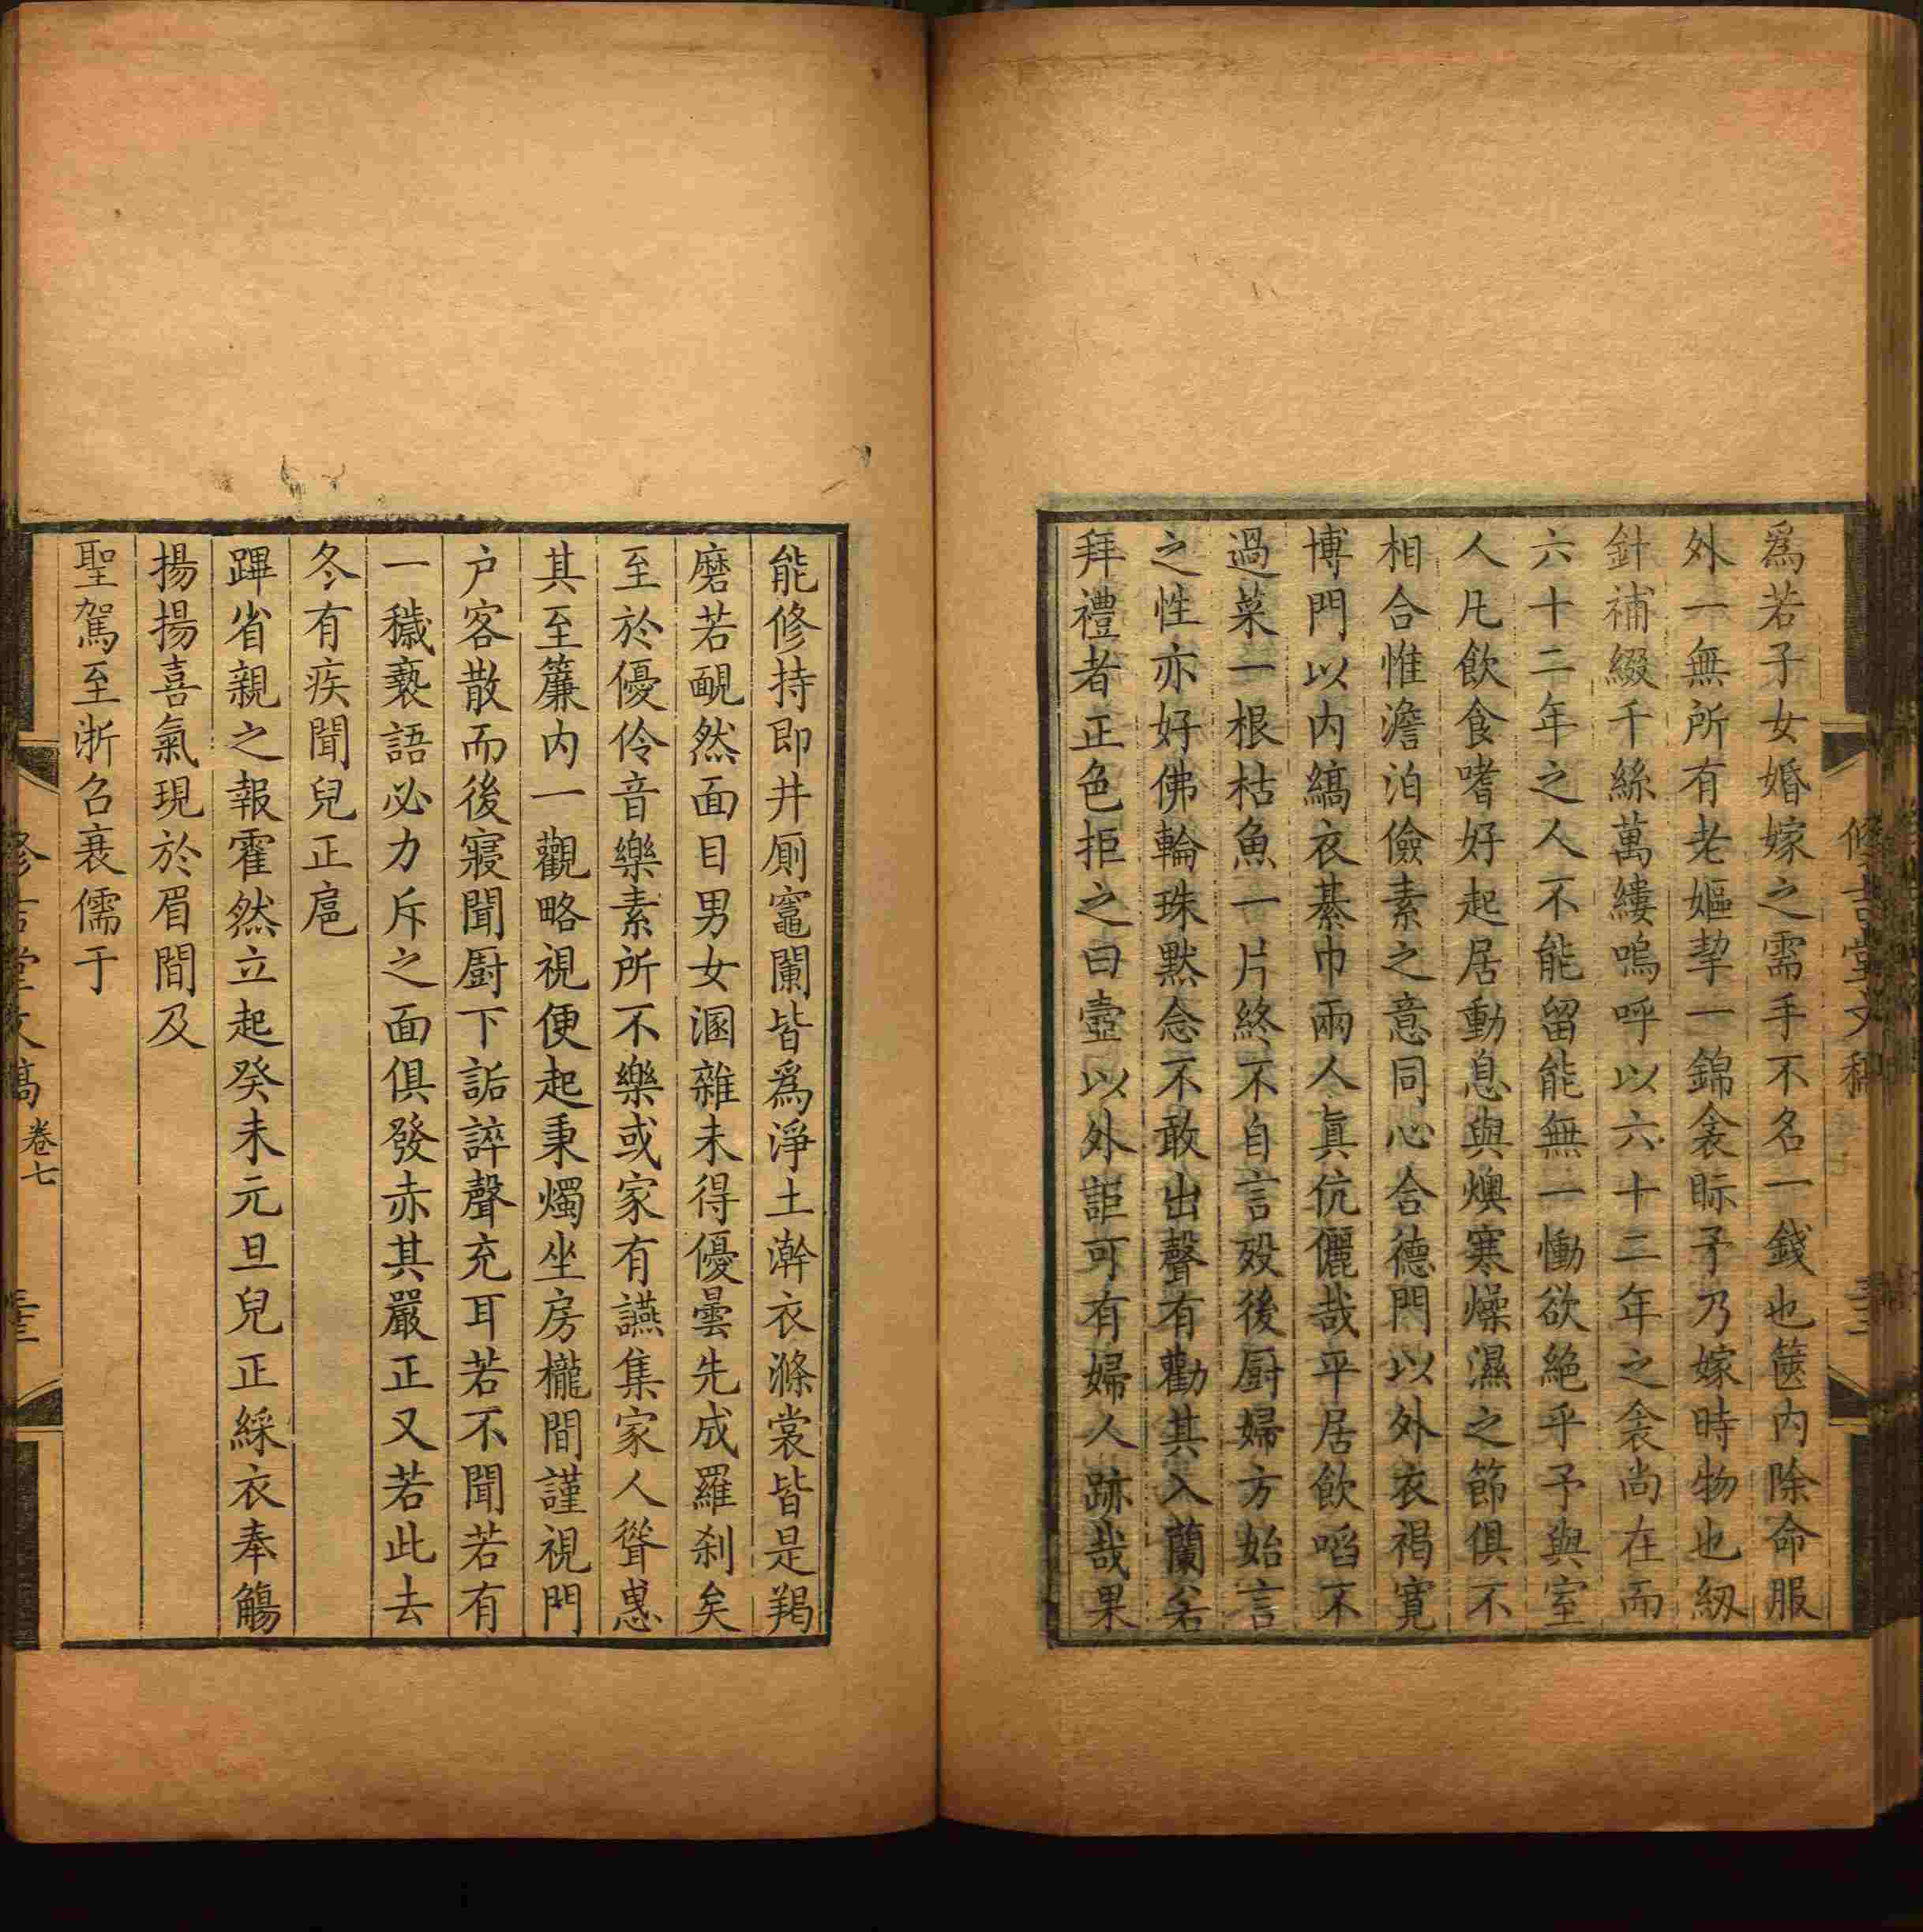 爲若子女婚嫁之需手不名一錢也篋內除命服
外一無所有老嫗挈一錦衾眎予乃嫁時物也紉
針補綴千絲萬縷嗚呼以六十二年之衾尚在而
六十二年之人不能留能無一慟欲絕乎予與室
人凡飲食嗜好起居動息與燠寒燥濕之節俱不
相合惟澹泊儉素之意同心合德門以外衣褐寬
博門以内縞衣綦巾兩人眞伉儷哉平居飲啗不
過菜一根枯魚一片終不自言歿後厨婦方始言
之性亦好佛輪珠默念不敢出聲有勸其入蘭若
拜禮者正色拒之曰壼以外詎可有婦人跡哉果
能修持即井厠竈闌皆爲淨土澣衣滌裳皆是羯
磨若靦然面目男女溷雜未得優曇先成羅刹矣
至於優伶音樂素所不樂或家有讌集家人聳惥
其至簾内一觀略視便起秉燭坐房櫳間謹視門
户客散而後寢聞厨下詬誶聲充耳若不聞若有
一穢褻語必力斥之面俱發赤其嚴正又若此去
冬有疾聞兒正扈
蹕省親之報霍然立起癸未元旦兒正綵衣奉觴
揚揚喜氣現於眉間及
聖駕至浙召衰儒于
修吉堂文稿 卷七